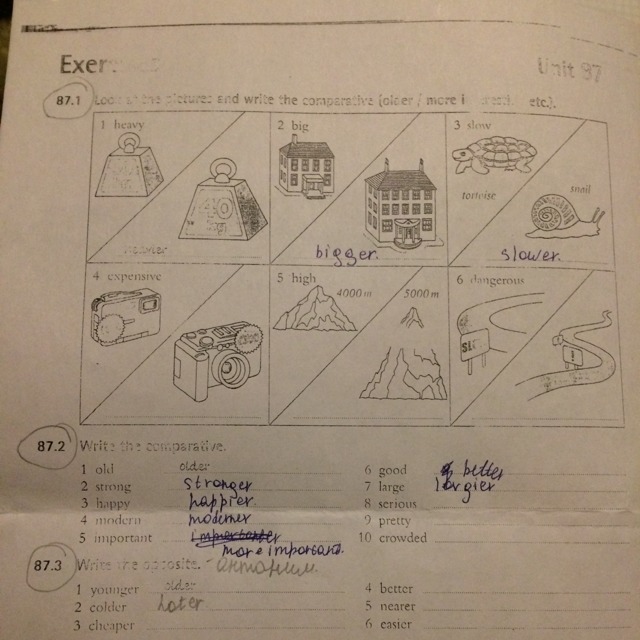 Exercises
Unit 87
87.1 Look at the pictures and write the comparative (older / more interesting etc.).
1 heavy
2 big
3 slow
tortoise
snail
heavier
bigger.
slower.
4 expensive
5 high
4000 m
5000 m
6 dangerous
87.2 Write the comparative.
1 old older
2 strong stronger
3 happy happier.
4 modern moderner
5 important
more important.
6 good better
7 large largier
8 serious
9 pretty
10 crowded
87.3 Write the opposite. Антоним.
1 younger older
2 colder hoter
3 cheaper
4 better
5 nearer
6 easier